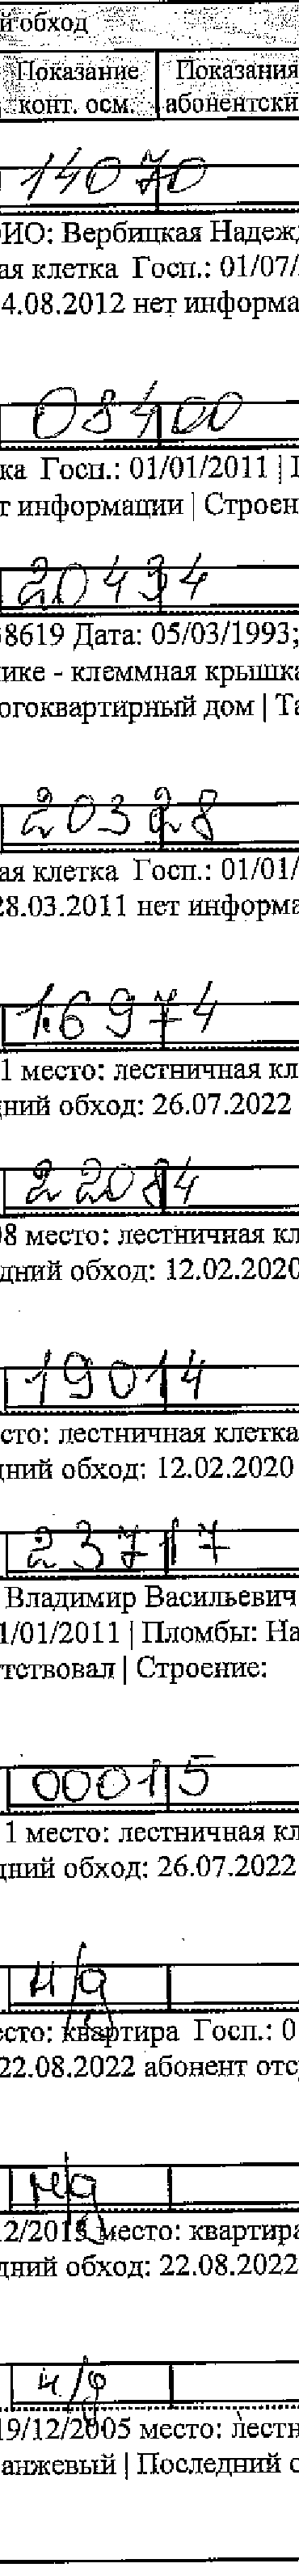 й обход
Показание Показания
конт. осм. абонентски
14070
ФИО: Вербицкая Надеж
ая клетка Госп.: 01/07/
4.08.2012 нет информа
08400
ка Госп.: 01/01/2011 |
т информации | Строен
20434
8619 Дата: 05/03/1993;
ике - клеммная крышка
огоквартирный дом | Та
20328
ая клетка Госп.: 01/01/
28.03.2011 нет информа
16974
1 место: лестничная кл
дний обход: 26.07.2022
22084
08 место: лестничная кл
дний обход: 12.02.2020
19014
сто: лестничная клетка
дний обход: 12.02.2020
23717
Владимир Васильевич
1/01/2011 | Пломбы: На
тствовал | Строение:
00015
1 место: лестничная кл
дний обход: 26.07.2022
н/д
есто: квартира Госп.: 0
22.08.2022 абонент отс
н/д
12/2015 место: квартира
дний обход: 22.08.2022
н/д
19/12/2005 место: лестн
анжевый | Последний о